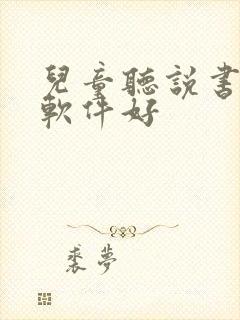 兒童聽説書
軟件好
裘夢